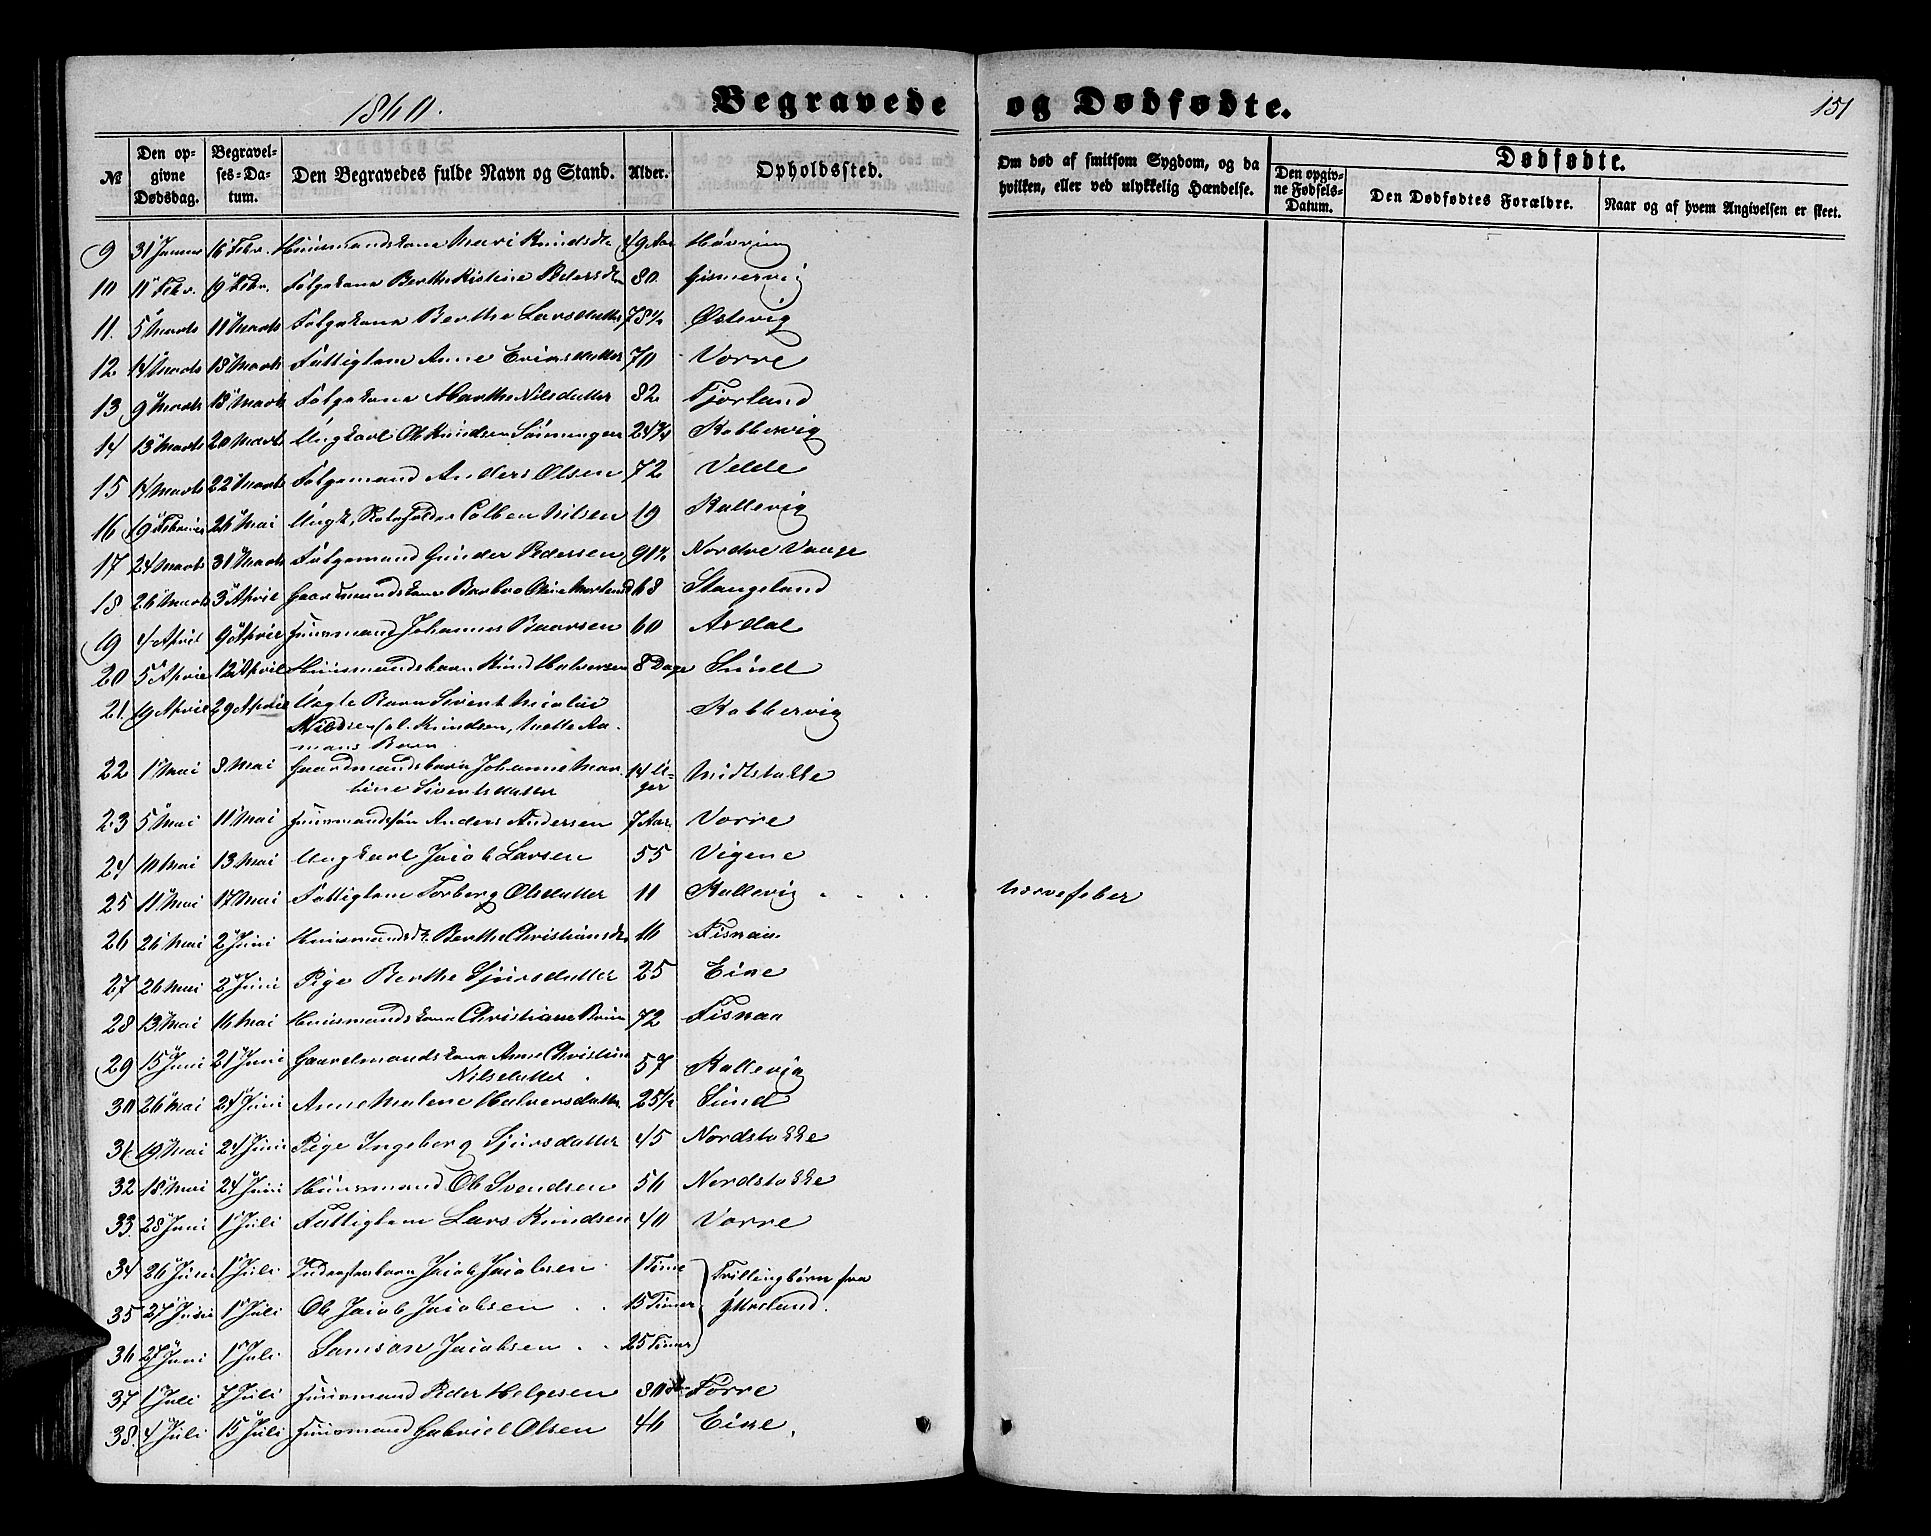 1860.
Begravede og Dødfødte.
151
№
Den opgivne Dødsdag.
Begravelses-Datum.
Den Begravedes fulde Navn og Stand.
Alder.
Opholdssted.
Om død af smitsom Sygdom, og da hvilken, eller ved ulykkelig Hændelse.
Dødfødte.
Den opgivne Fødsels-Datum.
Den Dødfødtes Forældre.
Naar og af hvem Angivelsen er skeet.
9 31 Januar 16 Febr. Huusmandskone Mari Knudsdtr 49 Aar Høvring
10 11 Febr. 19 Febr. Følgekone Berthe Kistine Pedersdtr 80 Gismervig
11. 5 Marts 11 Marts Følgekone Berthe Larsdatter 78½ Østevig
12 14 Marts 18 Marts Fattiglem Anne Ericsdatter 70 Vorre
13 9 Marts 13 Marts Følgekone Marthe Nilsdatter 82 Tjorland
14 13 Marts 20 Marts Ungkarl Ole Knudsen 24¾ Kobbervig
15 14 Marts 22 Marts Følgemand Anders Olsen 72 Velde
16 19 Februar 26 Mai Ungk. Colben Nilsen 19 Kallevig
17 24 Marts 31 Marts Følgemand Gunder Pedersen 91½ Nordre Vaage
18. 26 Marts 3 April Gaardmandskone Barbro 68 Stangeland
19 4 April 9 April Huusmand Johannes Baarsen 60 Avdal
20 5 April 12 April Huusmandsbarn Knud Halvorsen 8 Dage Sund
21. 19 April 29 April Uægte Barn Sivert Nicolai Kobbervig
Nilsen
22 1 Mai 3 Mai Gaardmandsbarn Johanne Mar- 14 U- Midtstokke
tine Sivertsdatter ger
23 5 Mai 11 Mai Huusmandssøn Anders Andersen 7 Aar. Vorre
24 10 Mai 13 Mai Ungkarl Jacob Larsen 55 Vigene
25 11 Mai 17 Mai Fattiglem Torberg Olsdatter 11 Kallevig . . . . Nervefeber
26 26 Mai 2 Juni Huusmandsd. Berthe Christiansdtr 16 Fisnaa
27 26 Mai 2 Juni Pige Berthe Sjursdatter 25 Eike
28 13 Mai 16 Mai Huusmandskone Christiane Bruun 72 Fisnaa
29 15 Juni 21 Juni Gaardmandskone Anne Christine 57 Kallevig
Nilsdatter
30 26 Mai 24 Juni Anne Malene Halvorsdatter 25½ Sund
31 19 Mai 24 Juni Pige Ingeborg Sjursdatter 45 Nordstokke
32 18 Mai 24 Juni Huusmand Ole Svendsen 56 Nordstokke
33. 28 Juni 1 Juli Fattiglem Lars Knudsen 40 Vorre
34 26 Juni 1 Juli Inderstesbarn Jacob Jacobsen 1 Time Trillingbørn fra
35 27 Juni 1 Juli Ole Jacob Jacobsen . . 15 Timer Ytreland.
36 27 Juni 1 Juli Samson Jacobsen . . 25 Timer
37 1 Juli 7 Juli Huusmand Peder Helgesen 80 Førre
38. 4 Juli 15 Juli Huusmand Gabriel Olsen 46 Eike.